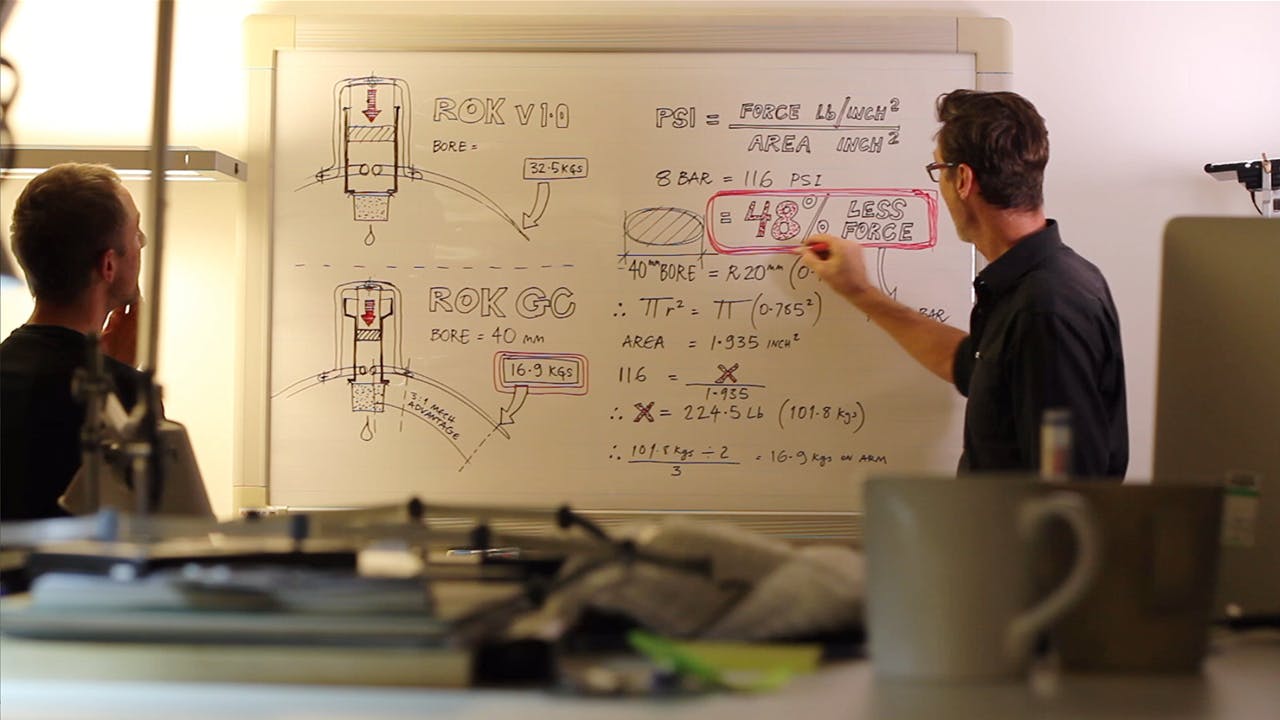 ROK V1.0
BORE =
32.5 KGS
ROK GC
BORE = 40 mm
16.9 KGS
3:1 MECH
ADVANTAGE
PSI = FORCE Lb/INCH²
AREA INCH²
8 BAR = 116 PSI
= 48% LESS
FORCE
40mm BORE = R20mm (0.
∴ πr² = π(0.785²)
BAR
AREA = 1.935 INCH²
116 = X
1.935
∴ X = 224.5 Lb (101.8 Kgs)
∴ 101.8 Kgs ÷ 2
3
= 16.9 Kgs ON ARM